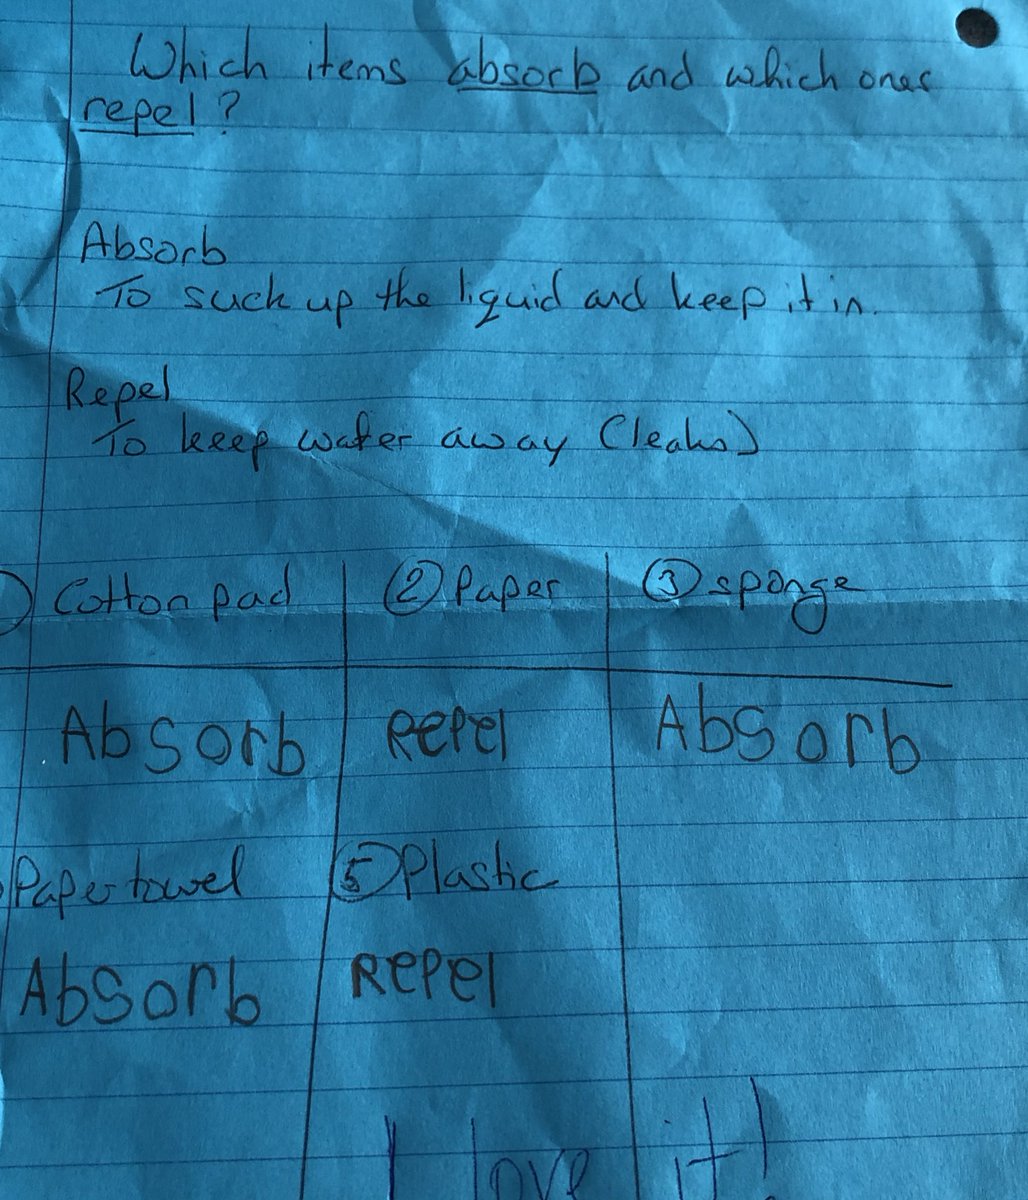 Which items absorb and which ones
repel?
Absorb
To suck up the liquid and keep it in.
Repel
To keep water away (leaks)
Cotton pad ② Paper ③ sponge
Absorb Repel Absorb
Paper towel ⑤ Plastic
Absorb Repel
I love it!